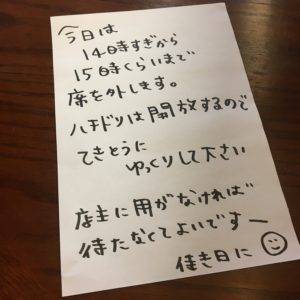 今日は
14時すぎから
15時くらいまで
席を外します。
ハチドリは開放するので
てきとうに
ゆっくりして下さい
店主に用がなければ
待たなくてよいですー
佳き日に